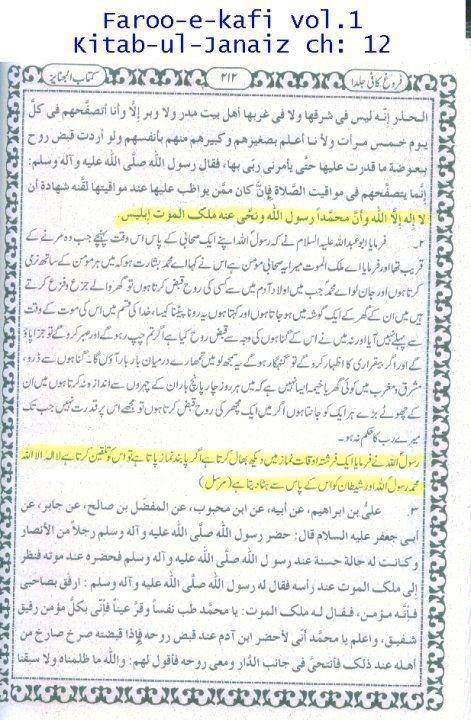 Faroo-e-kafi vol.1
Kitab-ul-Janaiz ch: 12
فروع کافی جلد ۱
۲۱۲
کتاب الجنائز
الحذر إنّه ليس في شرقها ولا في غربها أهل بيت مدر ولا وبر إلّا وأنا أتصفّحهم في كلّ
يوم خمس مرات ولأنا أعلم بصغيرهم وكبيرهم منهم بأنفسهم ولو أردت قبض روح
بعوضة ما قدرت عليها حتّى يأمرني ربّي بها، فقال رسول الله صلّى الله عليه و آله وسلم:
إنّما يتصفّحهم في مواقيت الصّلاة فإن كان ممّن يواظب عليها عند مواقيتها لقّنه شهادة أن
لا إله إلّا الله وأنّ محمّداً رسول الله ونحّى عنه ملك الموت إبليس.
۲۔ فرمایا ابو عبد اللہ علیہ السلام نے کہ رسول اللہ اپنے ایک صحابی کے پاس اس وقت پہنچے جب وہ مرنے کے
قریب تھا اور فرمایا اے ملک الموت میرا یہ صحابی مومن ہے اس نے کہا اے محمد بشارت ہو کہ میں ہر مومن کے ساتھ نرمی
کرتا ہوں اور جان لو اے محمد جب میں اولاد آدم میں سے کسی کی روح قبض کرتا ہوں تو گھر والے جزع و فزع کرتے
ہیں میں ان کے گھر کے ایک گوشہ میں ہو جاتا ہوں اور کہتا ہوں یہ رونا پیٹنا کیسا، خدا کی قسم میں اس کی موت کے وقت
سے پہلے نہیں آیا اور نہ میں نے اس کے گناہوں کی وجہ سے قبض روح کیا ہے اگر تم چپ رہو گے اور صبر کرو گے تو جزا پاؤ
گے اور اگر بیقراری کا اظہار کرو گے تو گنہگار ہو گے یہ سمجھ لو میں تمہارے درمیان بار بار آؤں گا۔ گناہوں سے ڈرو،
مشرق و مغرب میں کوئی گھر یا خیمہ ایسا نہیں ہے کہ میں ہر روز پانچ بار ان کے چہروں سے اندازہ نہ کرتا ہوں میں ان
کے چھوٹے بڑے ہر ایک کو جانتا ہوں اگر میں ایک مچھر کی روح قبض کرتا ہوں تو مجھے اس پر قدرت نہیں جب تک
میرے رب کا حکم نہ ہو۔
رسول اللہ نے فرمایا ایک فرشتہ اوقات نماز میں دیکھ بھال کرتا ہے اگر پابند نماز پاتا ہے تو اس کو تلقین کرتا ہے لا الہ الا اللہ
محمد رسول اللہ اور شیطان کو اس کے پاس سے ہٹا دیتا ہے (مرسل)
۳۔ عليُّ بن ابراهيم، عن أبيه، عن ابن محبوب، عن المفضّل بن صالح، عن جابر، عن
أبي جعفر عليه السلام قال: حضر رسول الله صلّى الله عليه و آله وسلم رجلاً من الأنصار
وكانت له حالة حسنة عند رسول الله صلّى الله عليه و آله وسلم فحضره عند موته فنظر
إلى ملك الموت عند رأسه فقال له رسول الله صلّى الله عليه و آله وسلم : ارفق بصاحبي
فإنّه مؤمن، فقال له ملك الموت: يا محمّد طب نفساً وقرّ عيناً فأنّي بكلّ مؤمن رفيق
شفيق، واعلم يا محمّد أنّي لأحضر ابن آدم عند قبض روحه فإذا قبضته صرخ صارخ من
أهله عند ذلك فأتنحّى في جانب الدّار ومعي روحه فأقول لهم: والله ما ظلمناه ولا سبقنا